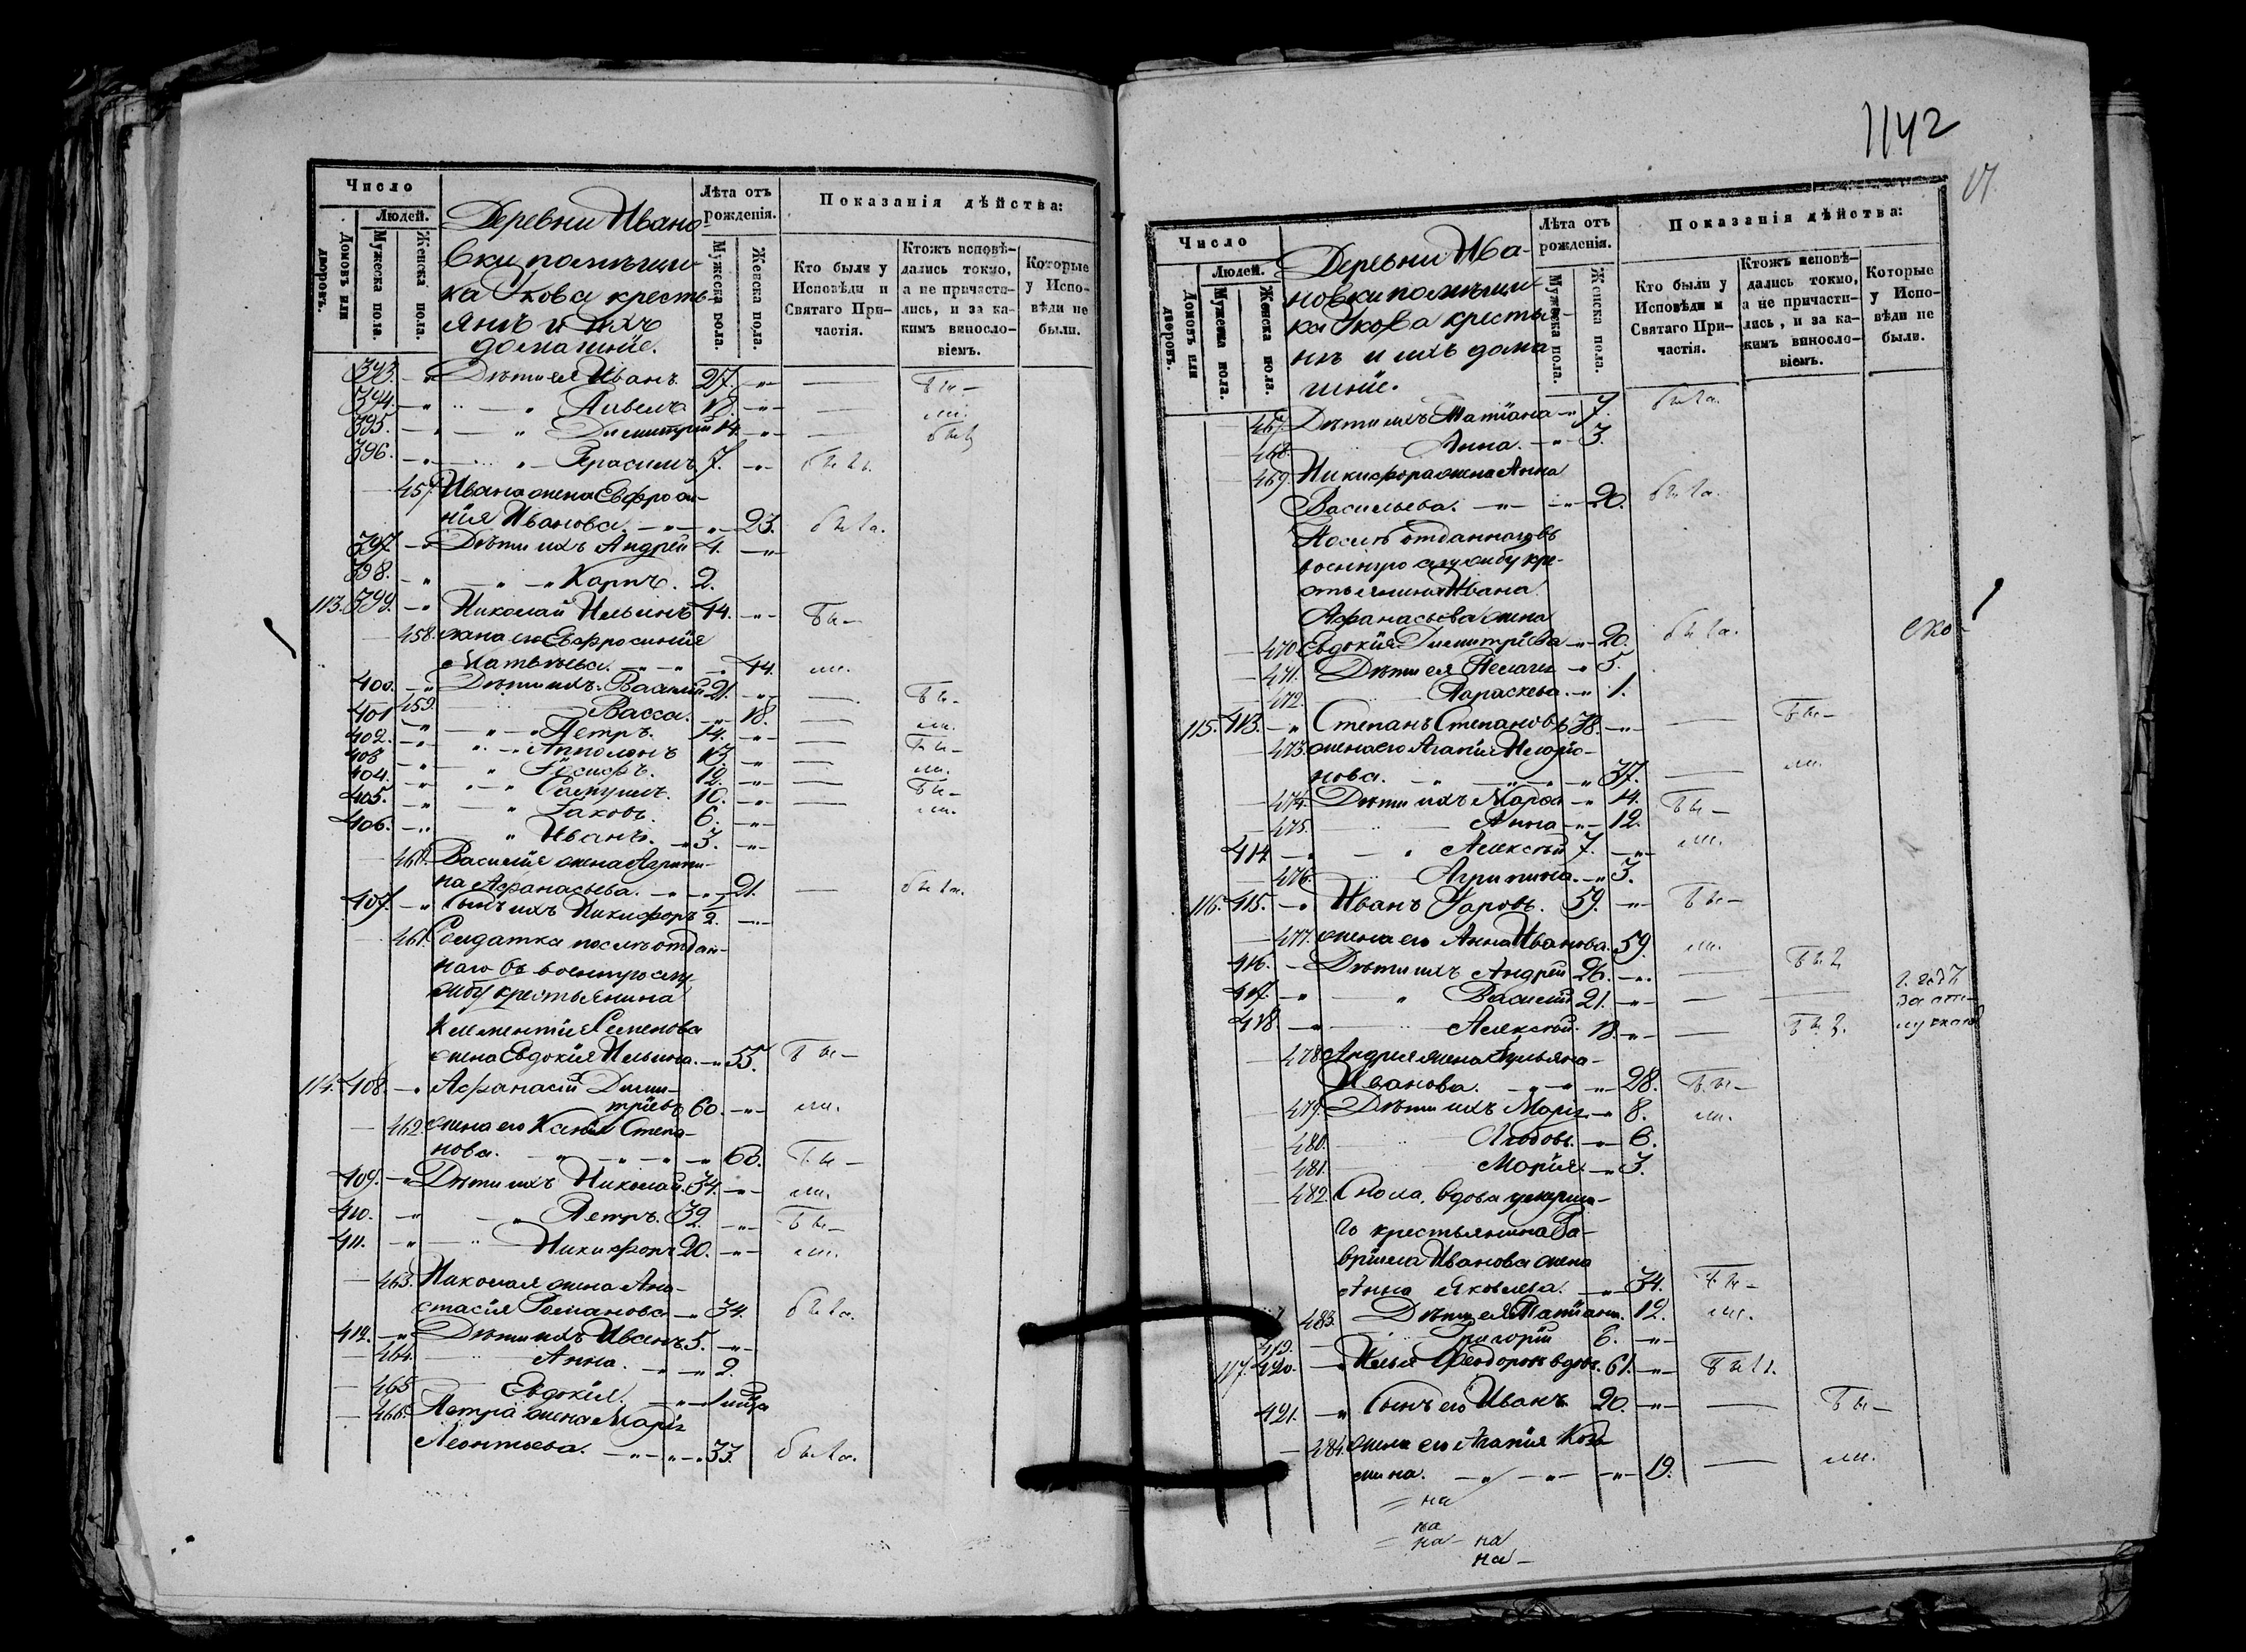 Число
Людей.
Домовъ или дворовъ.
Мужеска пола.
Женска пола.
Деревни Ивано-
вки помѣщи-
ка Укова кресть-
янъ и ихъ
домашніе.
Лѣта отъ рожденія.
Мужска пола.
Женска пола.
Показанія дѣйства:
Кто были у Исповѣди и Святаго Причастія.
Ктожъ исповѣ-дались токмо, а не причасти-лись, и за ка-кимъ винослo-віемъ.
Которые у Испо-вѣди не были.
393. Дѣти ея Иванъ 27. бы-
394. Павелъ 18. ли.
395. Димитрій 14. былъ
396. Герасимъ 7. былъ.
457. Ивана жена Евфроси-
нія Иванова. 23. была.
397. Дѣти ихъ Андрей 4.
398. Карпъ. 2.
113. 399. Николай Ильинъ 44. бы-
458. жена его Евфросинія
Матвѣева. 44. ли.
400. Дѣти ихъ Василій 21. бы-
459. Васса. 18. ли.
401 Петръ. 14. бы-
402. Апполонъ 13. ли.
403 Іосифъ. 12. бы-
404. Самуилъ. 10. ли.
405. Іаковъ. 6.
406. Иванъ. 3.
460. Василія жена Агрипи-
на Афанасьева. 21. была.
407. Сынъ ихъ Никифоръ 1/2.
461. Солдатка послѣ отдан-
наго въ военную слу-
жбу крестьянина
Клементія Семенова
жена Евдокія Ильина. 55. бы-
114. 408. Афанасій Дими-
тріевъ 60. ли.
462. жена его Ксенія Степа-
нова. 60. бы-
409. Дѣти ихъ Николай. 34. ли.
410. Петръ. 32. бы-
411. Никифоръ 20. ли.
463. Николая жена Ана-
стасія Романова 34. была.
412. Дѣти ихъ Иванъ. 5.
464. Анна. 2.
465 Евдокія.
466. Петра жена Марія
Леонтьева. 33. была.
1142
17.
Число
Людей.
Домовъ или дворовъ.
Мужеска пола.
Женска пола.
Деревни Ива-
новки помѣщи-
ка Укова крестья-
нъ и ихъ дома
шніе.
Лѣта отъ рожденія.
Мужска пола.
Женска пола.
Показанія дѣйства:
Кто были у Исповѣди и Святаго При-частія.
Ктожъ исповѣ-дались токмо, а не причасти-лись, и за ка-кимъ винослo-віемъ.
Которые у Испо-вѣди не были.
467. Дѣти ихъ Татіана 7. была.
468. Анна. 3.
469. Никифора жена Анна
Васильева. 20. была.
Послѣ отданнаго въ
военную службу кре-
стьянина Ивана
Афанасьева жена
470 Евдокія Димитріева 20. была.
471. Дѣти ея Пелагія 5.
472. Параскева. 1.
115. 413. Степанъ Степановъ 38. бы-
473. жена его Агапія
нова. 37. ли.
474. Дѣти ихъ Марфа 14. бы-
475. Анна 12. ли.
414 Алексѣй 7.
476. Агрипина. 3.
116. 415. Иванъ Уаровъ. 59. бы-
477. жена его Анна Иванова. 59. ли.
416. Дѣти ихъ Андрей 26. былъ
417. Василій 21.
418. Алексѣй. 18. былъ.
478. Андрея жена Ульяна
Иванова. 28. бы-
479. Дѣти ихъ Марія 8. ли.
480. Любовь. 6.
481. Марія. 3.
482. Сноха, вдова умерша-
го крестьянина Га-
вріила Иванова жена
Анна Яковлева. 34. бы-
483. Дѣти ея Татіана. 12. ли.
419. Григорій 6.
117. 420. Илья Феодоровъ вдовъ. 61. былъ.
421. Сынъ его Иванъ 20. бы-
484. жена его Агапія Козь
мина. 19. ли.
= на
на
= на - на
на -